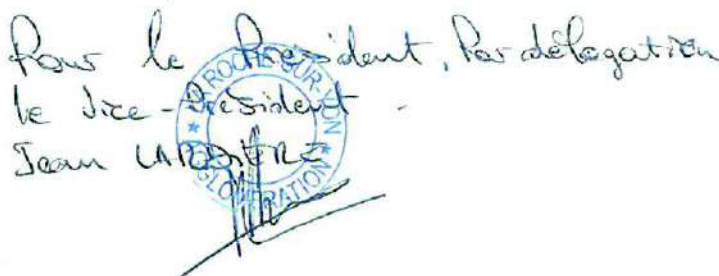 Pour le Président, Par délégation
le Vice-Président
Jean
LA ROCHE-SUR-YON
AGGLOMÉRATION